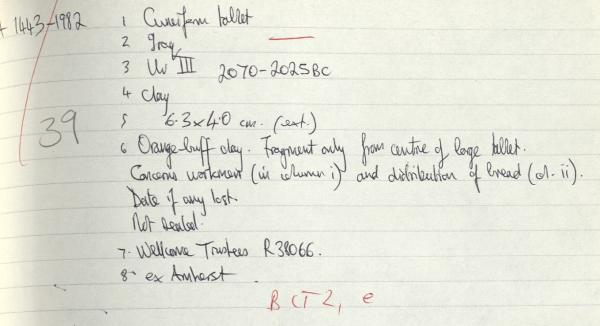 1443-1982
1 Cuneiform tablet
2 Iraq
3 Ur III 2070-2025BC
4 Clay
5 6.3x4.0 cm. (ext.)
39
6 Orange-buff clay. Fragment only from centre of large tablet.
Concerns workmen (in column i) and distribution of bread (col. ii).
Date if any lost.
Not sealed.
7. Wellcome Trustees R38066.
8. ex Amherst.
BCT2, e